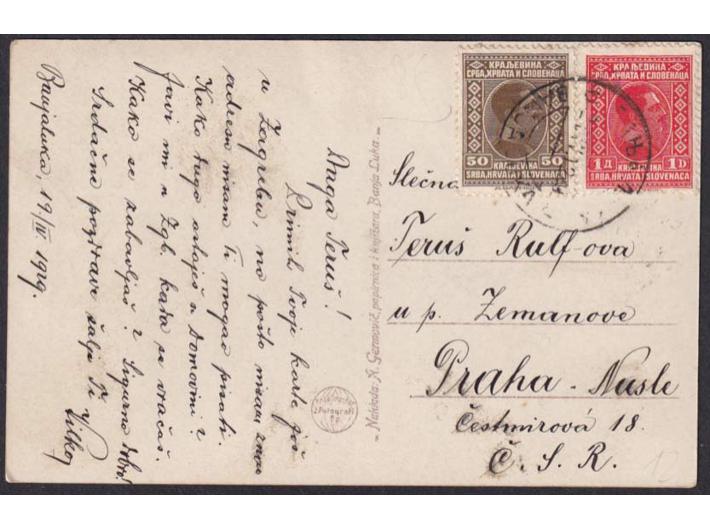 Draga Teruš!
Primih Tvoje karte još
u Zagrebu, no pošto nisam znao
adresu nisam Ti mogao pisati.
Kako dugo ostaješ u Domovini?
Javi mi u Zgb. kada se vraćaš.
Kako se zabavljaš? Sigurno dobro!
Srdačne pozdrave šalje Ti
Banjaluka, 19/IV. 1929.
Naklada: R. papirnica i knjižara, Banja Luka
КРАЉЕВИНА
СРБА, ХРВАТА И СЛОВЕНАЦА
50 50
KRALJEVINA
SRBA, HRVATA I SLOVENACA
КРАЉЕВИНА
СРБА, ХРВАТА И СЛОВЕНАЦА
1 Д 1 D
KRALJEVINA
SRBA, HRVATA I SLOVENACA
Slečna
Teruš Rulf-ova
u p. Zemanove
Praha - Nusle
Čestmirová 18.
Č. S. R.
12